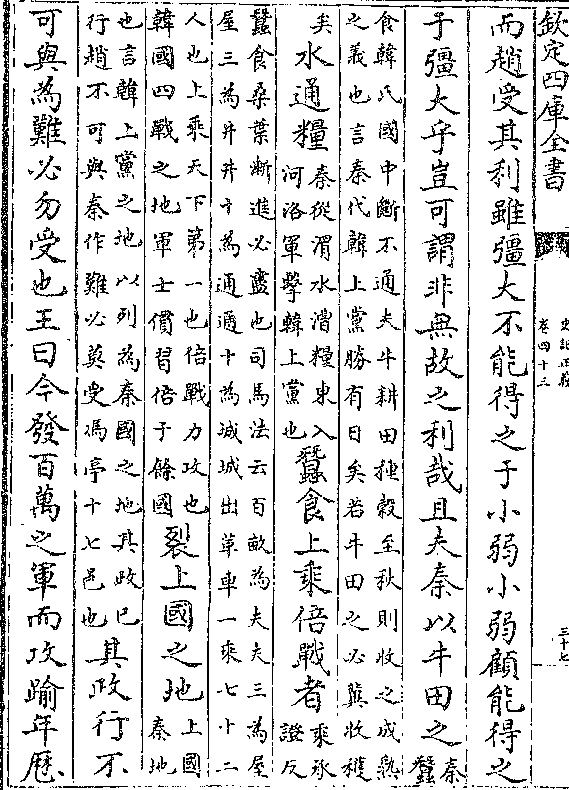 欽定四庫全書
史記正義
卷四十三
三十七
而趙受其利雖彊大不能得之于小弱小弱顧能得之
于彊大乎豈可謂非無故之利哉且夫秦以牛田之秦蠶
食韓氏國中斷不通夫牛耕田種穀至秋則收之成熟
之義也言秦代韓上黨勝有日矣若牛田之必冀收穫
矣水通糧秦從渭水漕糧東入河洛軍擊韓上黨也蠶食上乘倍戰者乘承證反
蠶食桑葉漸進必盡也司馬法云百畝為夫夫三為屋
屋三為井井十為通通十為成城出革車一乘七十二
人也上乘天下第一也倍戰力攻也韓國四戰之地軍士慣習倍于餘國裂上國之地上國秦地
也言韓上黨之地以列為秦國之地其政已行趙不可與秦作難必莫受馮亭十七邑也其政行不
可與為難必勿受也王曰今發百萬之軍而攻踰年歷